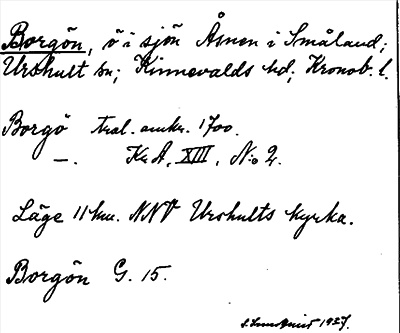 Borgön, ö i sjön Åsnen i Småland;
Urshult sn; Kinnevalds hd; Kronob. l.
Borgö tral. omkr. 1700.
—. Kr A, XIII, No 2.
Läge 11 km. NNV Urshults kyrka.
Borgön G. 15.
1927.